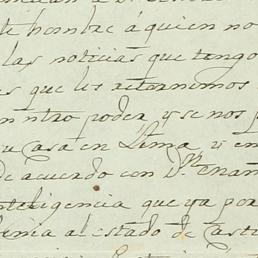 te hombre á quien no
las noticias que tengo
s que les retornemos
n ntro poder, y se nos p
u casa en Lima y en
de acuerdo con Dn
nteligencia que ya por
al estado de